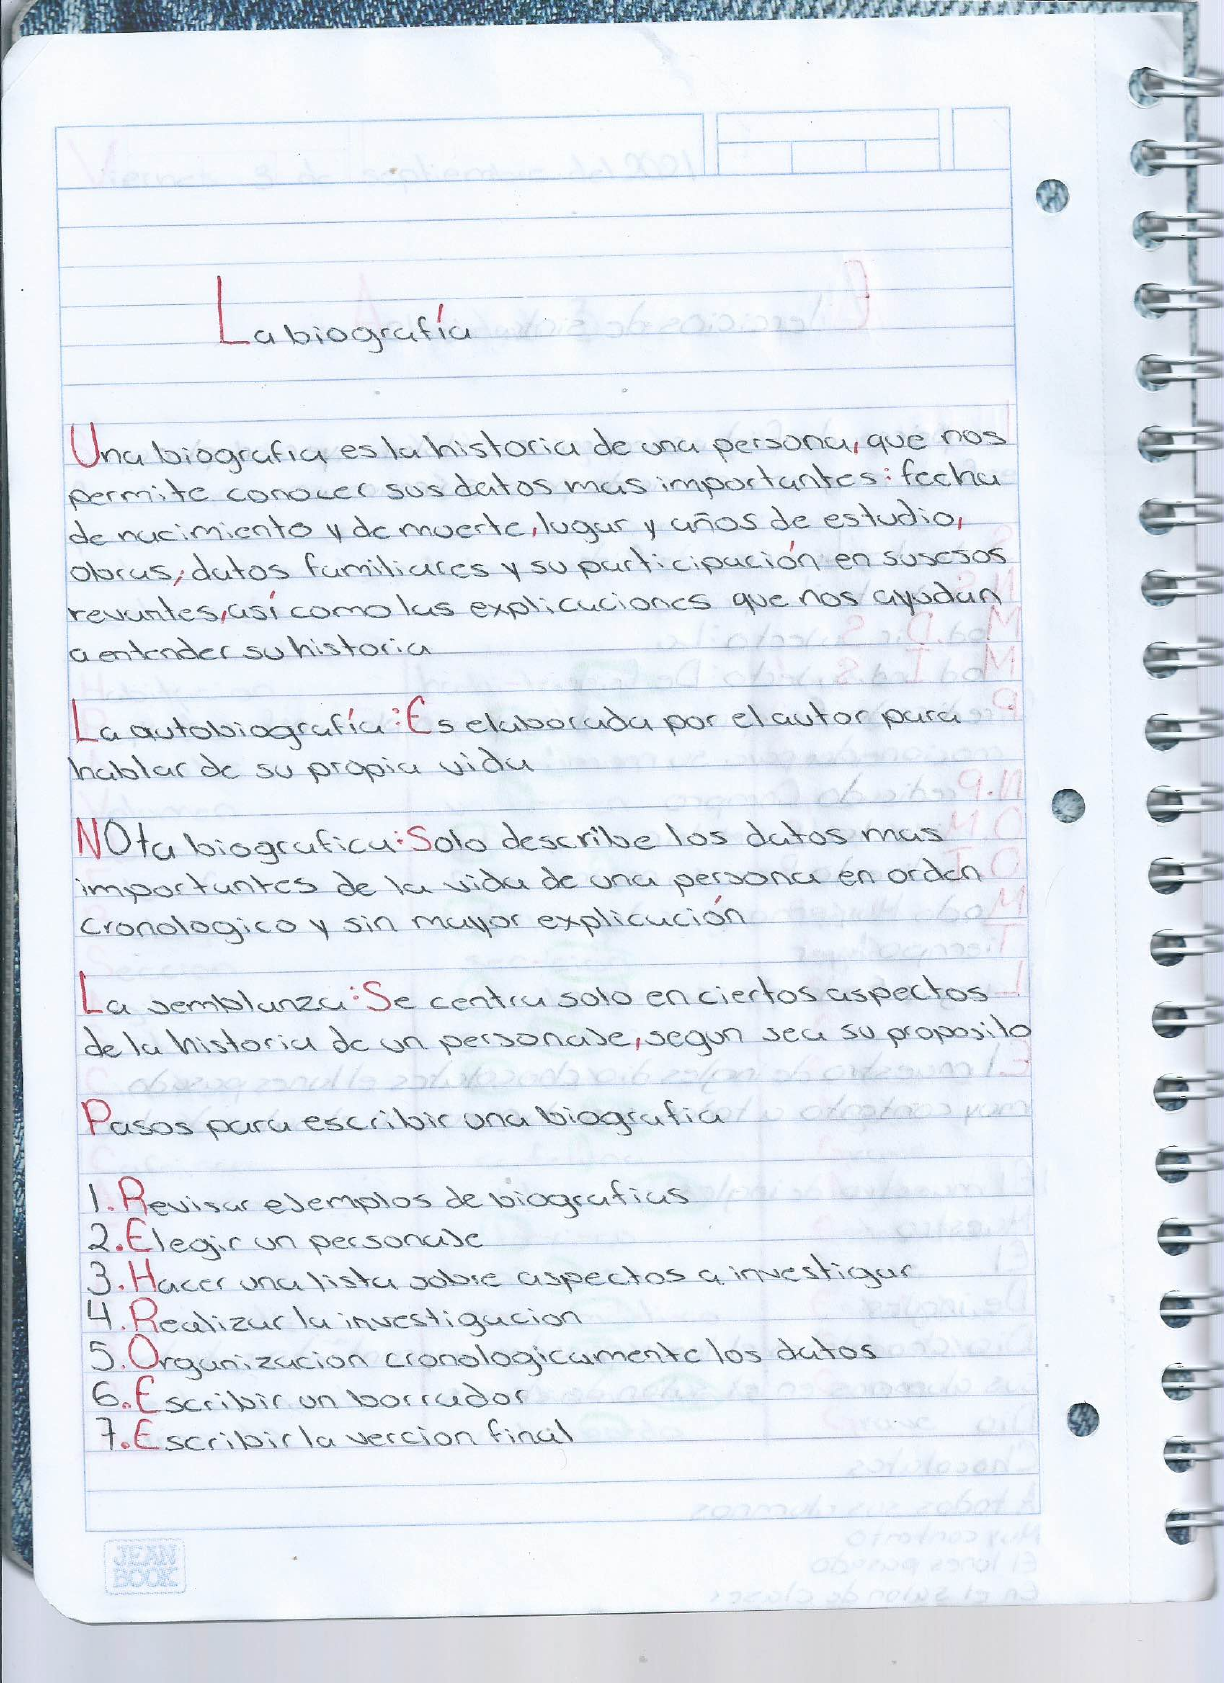 La biografía
Una biografia es la historia de una persona, que nos
permite conocer sus datos mas importantes: fecha
de nacimiento y de muerte, lugar y años de estudio,
obras, datos familiares y su participación en susesos
revantes, así como las explicaciones que nos ayudan
a entender su historia
La autobiografía: Es elaborada por el autor para
hablar de su propia vida
NOta biografica: Solo describe los datos mas
importantes de la vida de una persona en orden
cronologico y sin mayor explicación
La semblanza: Se centra solo en ciertos aspectos
de la historia de un personaje, segun sea su proposito
Pasos para escribir una biografia
1. Revisar ejemplos de biografias
2. Elegir un personaje
3. Hacer una lista sobre aspectos a investigar
4. Realizar la investigacion
5. Organizacion cronologicamente los datos
6. Escribir un borrador
7. Escribir la vercion final
JEAN
BOOK